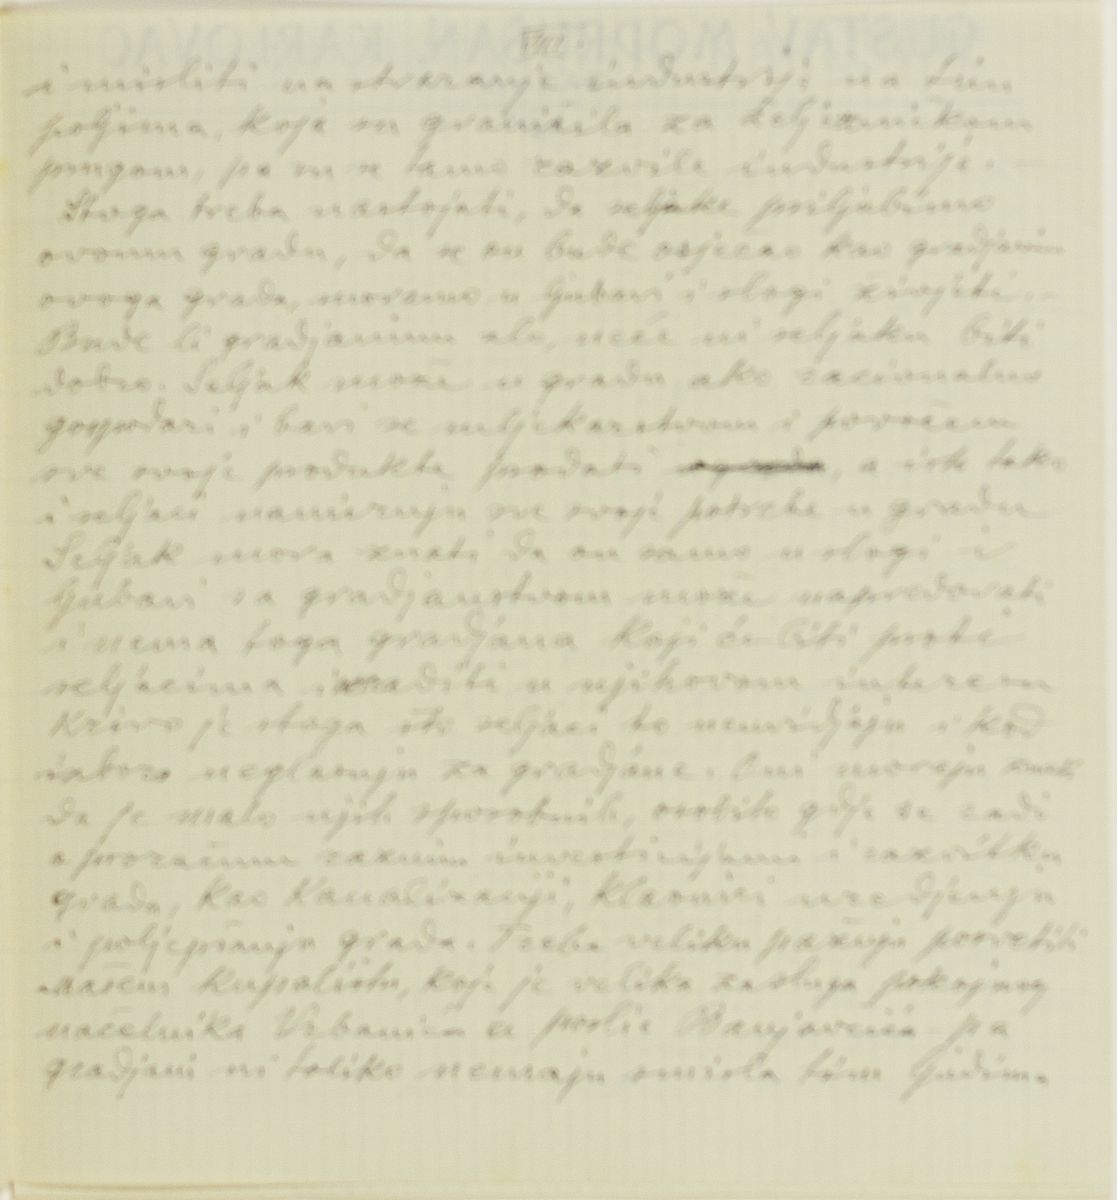 VIII.
i misliti na stvaranje industriji na tim
poljima, koje su graničila sa željezničkom
prugom, pa su se tamo razvile industrije.
Stoga treba nastojati, da seljake priljubimo
ovomu gradu, da se on bude osjećao kao gradjanin
ovoga grada, moramo u ljubavi i slogi živjeti.
Bude li gradjanima zlo, neće ni seljaku biti
dobro. Seljak može u gradu ako racionalno
gospodari i bavi se mljekarstvom i povrćem
sve svoje produkte prodati, a isto tako
i seljaci namiruju sve svoje potrebe u gradu
Seljak mora znati da on samo u slogi i
ljubavi sa gradjanstvom može napredovati
i nema toga gradjana koji će biti proti
seljacima i raditi u njihovom interesu
Krivo je stoga što seljaci to nemidjaju i kod
izbora neglasuju za gradjane. Oni moraju znati
da je malo njih sposobnih, osobito gdje se radi
o raznim investicijama i razvitku
grada, kao kanalizaciji, klaonici uredjenju
i poljepšanju grada. Treba veliku pažnju posvetiti
našem kupalištu, koje je velika zasluga pokojnog
načelnika Vrbanića a poslije Banjavčića pa
gradjani ni toliko nemaju smisla tim ljudima